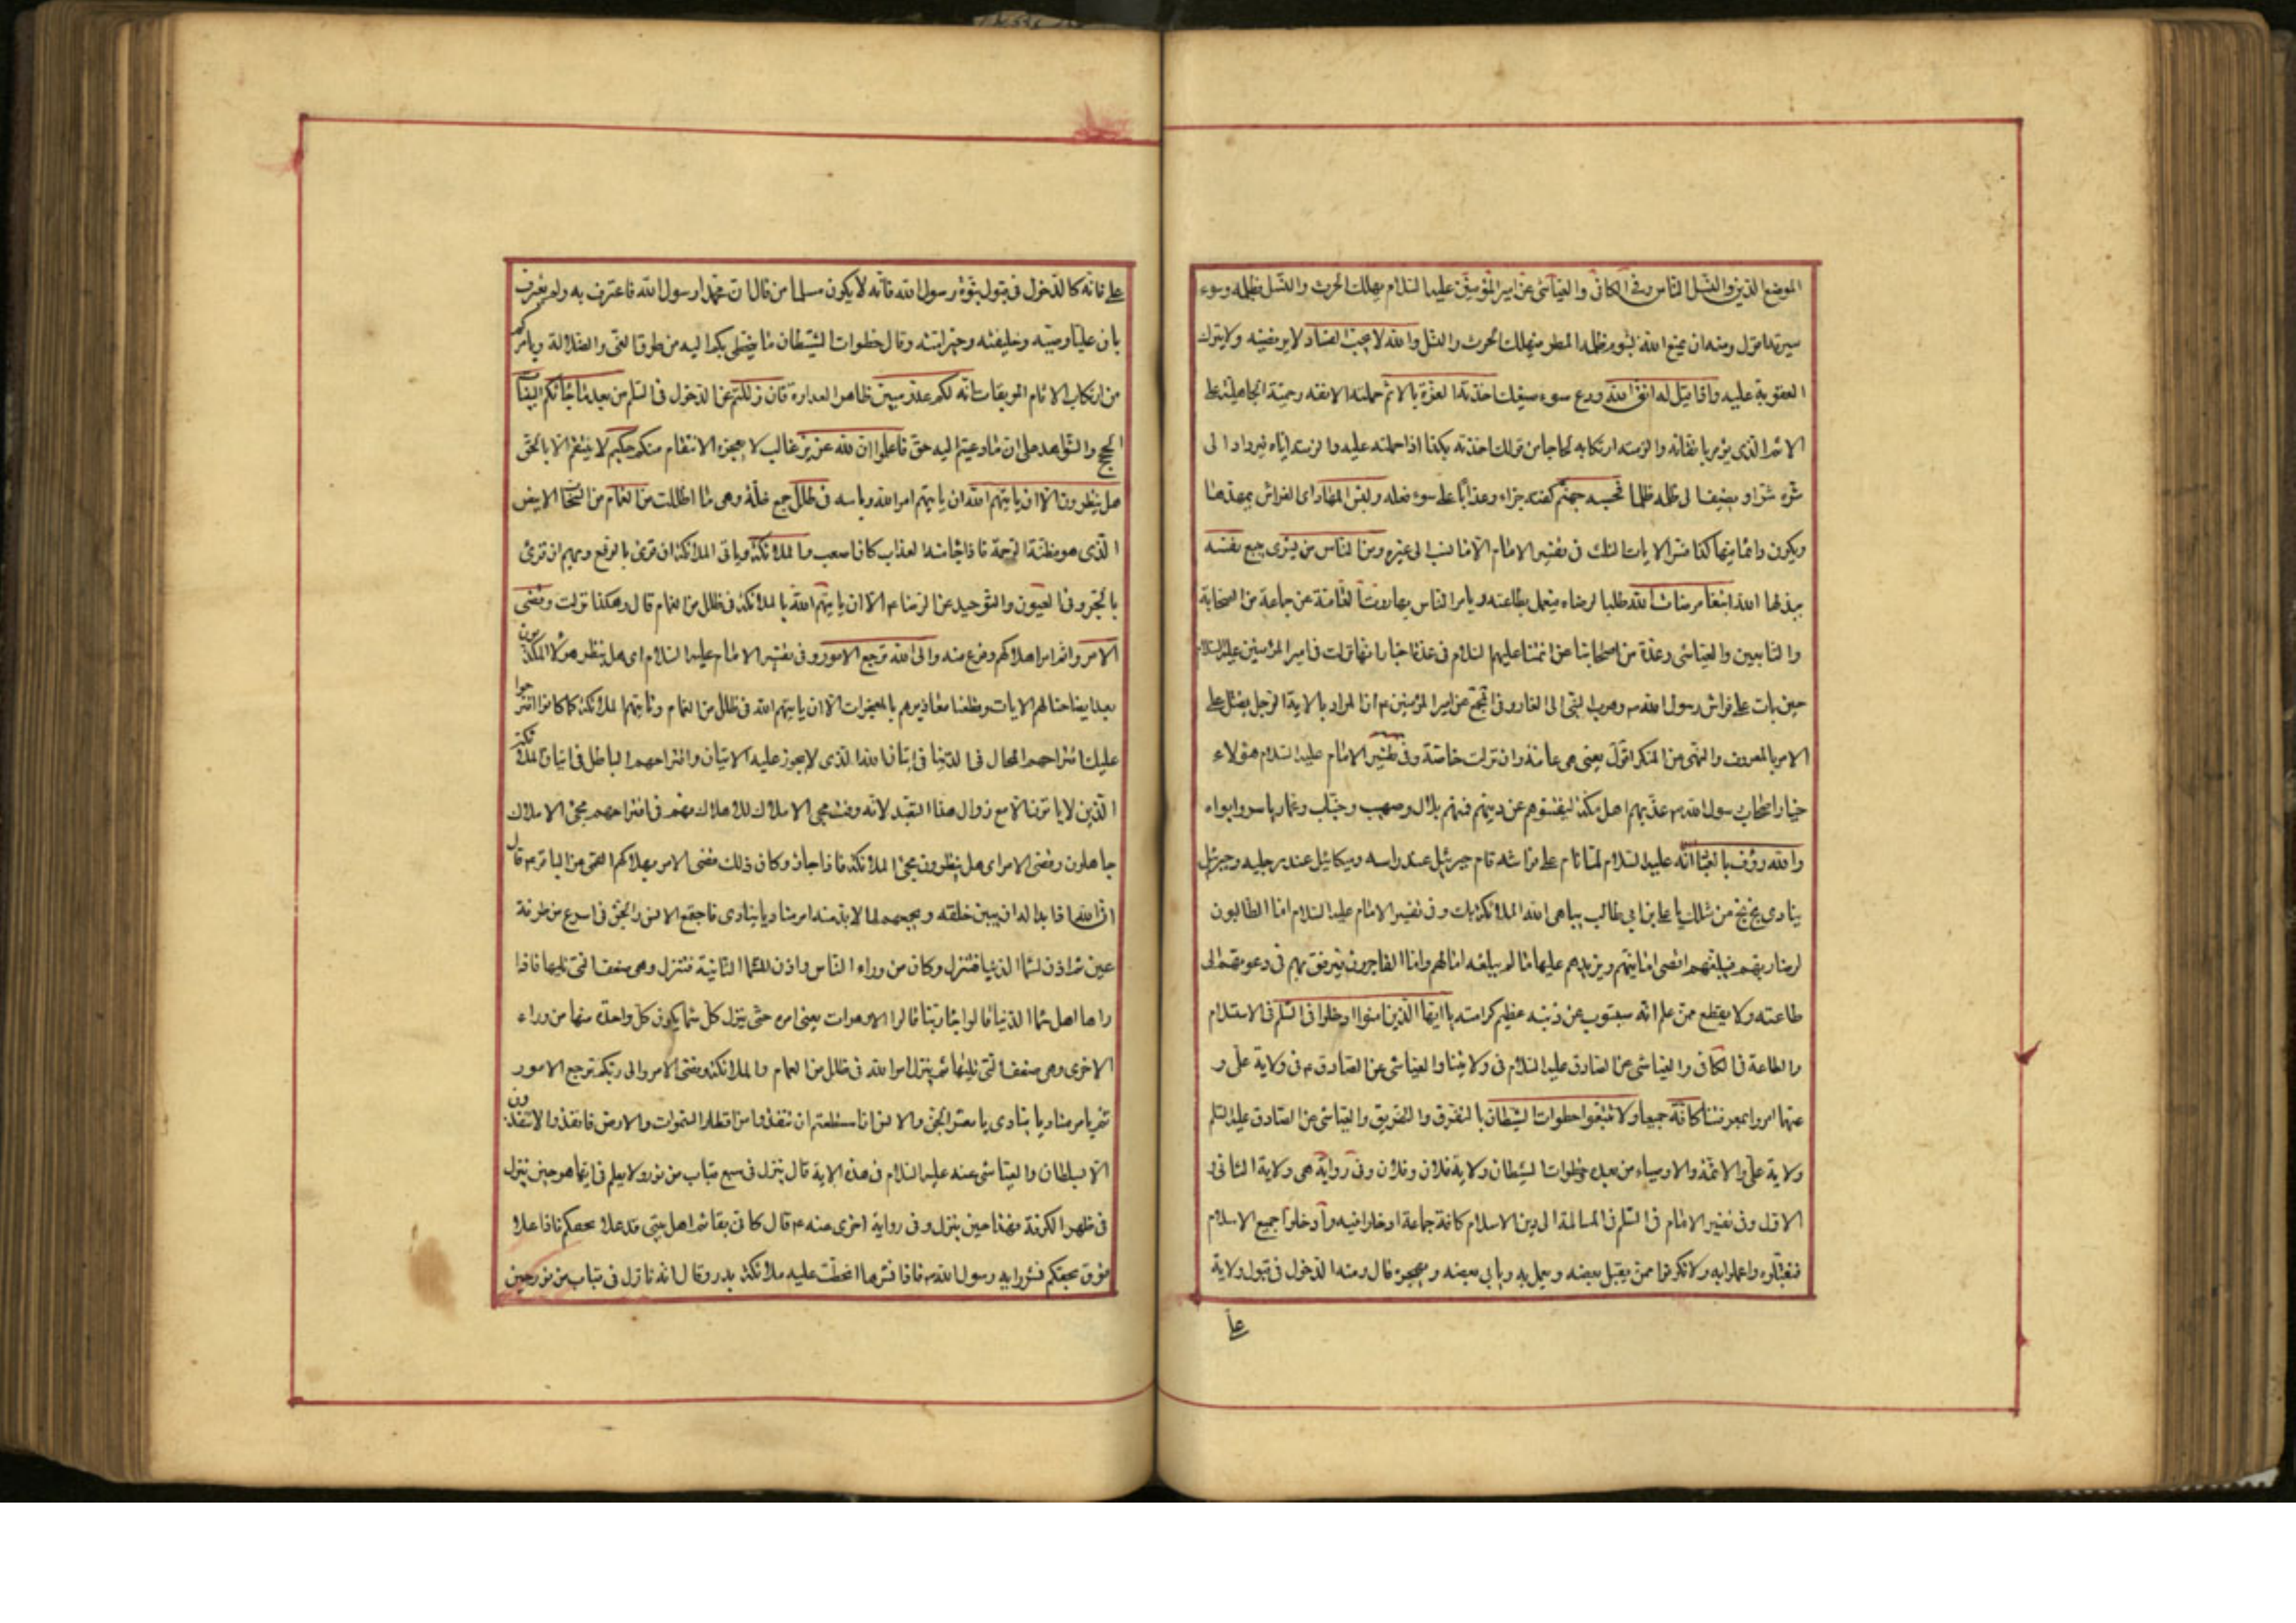 الموضع الدين والنسل الناس وفى الكافى والعياشى عن امير المؤمنين عليه السلام يهلك الحرث والنسل بظلمه وسوء
سيرته اقول ومنه ان يمنع الله بشوم ظلمه المطر فيهلك الحرث والنسل والله لا يحب الفساد لا يرتضيه ولا يترك
العقوبة عليه واذا قيل له اتق الله ودع سوء صنيعك اخذته العزة بالاثم حملته الانفة وحمية الجاهلية على
الاثم الذى يؤمر باتقائه والزمته ارتكابه لجاجا من قولك اخذته بكذا اذا حملته عليه والزمته اياه فيزداد الى
شره شرا ويضيف الى ظلمه ظلما فحسبه جهنم كفته جزاء وعذابا على سوء فعله ولبئس المهاد اى الفراش يمهدها
ويكون دائما فيها كذا فسر الايات الثلث فى تفسير الامام الا ما نسب الى غيره ومن الناس من يشرى يبيع نفسه
يبذلها لله ابتغاء مرضات الله طلبا لرضاه فيعمل بطاعته ويامر الناس بها روت العامة عن جماعة من الصحابة
والتابعين والعياشى وعدة من اصحابنا عن ائمتنا عليهم السلام فى عدة اخبار انها نزلت فى امير المؤمنين عليه السلام
حين بات على فراش رسول الله ص وهرب النبى الى الغار وفى المجمع عن امير المؤمنين ع ان المراد بالاية الرجل يقتل على
الامر بالمعروف والنهى عن المنكر اقول يعنى هى عامة وان نزلت خاصة وفى تفسير الامام عليه السلام هؤلاء
خيار اصحاب رسول الله ص عذبهم اهل مكة ليفتنوهم عن دينهم فمنهم بلال وصهيب وخباب وعمار ياسر وابواه
والله رؤف بالعباد انه عليه السلام لما نام على فراشه قام جبرئيل عند راسه وميكائيل عند رجليه وجبرئيل
ينادى بخ بخ من مثلك يا على بن ابى طالب يباهى الله الملائكة بك وفى تفسير الامام عليه السلام اما الطالبون
لرضا ربهم فيبلغهم اقصى امانيهم ويزيدهم عليها ما لم يبلغه امالهم واما الفاجرون فيرفق بهم فى دعوتهم الى
طاعته ولا يقطع ممن علم انه سيتوب عن ذنبه عظيم كرامته يا ايها الذين امنوا ادخلوا فى السلم فى الاستسلام
والطاعة فى الكافى والعياشى عن الصادق عليه السلام فى ولايتنا والعياشى عن الصادق ع فى ولاية على و
عنهما امروا بمعرفتنا كافة جميعا ولا تتبعوا خطوات الشيطان بالتفرق والتفريق والعياشى عن الصادق عليه السلم
ولاية على والائمة والاوصياء من بعده وخطوات الشيطان ولاية فلان وفلان وفى رواية هى ولاية الثانى
الاول وفى تفسير الامام فى السلم فى المسالمة الى دين الاسلام كافة جماعة ادخلوا فيه وادخلوا جميع الاسلام
فتقبلوه واعملوا به ولا تكونوا ممن يقبل بعضه ويعمل به ويابى بعضه ويهجره قال ومنه الدخول فى قبول ولاية
على
على فانه كالدخول فى قبول نبوة رسول الله فانه لا يكون مسلما من قال ان محمدا رسول الله فاعترف به ولم يعترف
بان عليا وصيه وخليفته وخير امته وقال خطوات الشيطان ما يتخطى بكم اليه من طرق الغى والضلالة ويامركم
من ارتكاب الاثام الموبقات انه لكم عدو مبين ظاهر العداوة فان زللتم عن الدخول فى السلم من بعد ما جاءتكم البينات
الحجج والشواهد على ان ما دعيتم اليه حق فاعلموا ان الله عزيز غالب لا يعجزه الانتقام منكم حكيم لا ينتقم الا بالحق
هل ينظرون الا ان ياتيهم الله ان ياتيهم امر الله وباسه فى ظلل جمع ظلة وهى ما اظلك من الغمام من السحاب الابيض
الذى هو مظنة الرحمة فاذا جاء منه العذاب كان اصعب والملائكة وياتى الملائكة ان قرئ بالرفع وبهم ان قرئ
بالجر وفى العيون والتوحيد عن الرضا ع الا ان ياتيهم الله بالملائكة فى ظلل من الغمام قال وهكذا نزلت وقضى
الامر واتم امر اهلاكهم وفرغ منه والى الله ترجع الامور وفى تفسير الامام عليه السلام اى هل ينظر هؤلاء المكذبون
بعد ايضاحنا لهم الايات وقطعنا معاذيرهم بالمعجزات الا ان ياتيهم الله فى ظلل من الغمام وتاتيهم الملائكة كما كانوا اقترحوا
عليك اقتراحهم المحال فى الدنيا فى اتيان الله الذى لا يجوز عليه الاتيان واقتراحهم الباطل فى اتيان الملائكة
الذين لا ياتون الا مع زوال هذا التعبد لانه وقت مجى الاملاك للاهلاك فهم فى اقتراحهم مجئ الاملاك
جاهلون وقضى الامر اى هل ينظرون مجئ الملائكة فاذا جاؤا وكان ذلك قضى الامر بهلاكهم القمى عن الباقر ع قال
ان الله اذا بدا له ان يبين خلقه ويجمعهم لما لا بد منه امر مناديا ينادى فاجتمع الانس والجن فى اسرع من طرفة
عين ثم اذن لسماء الدنيا فتنزل وكان من وراء الناس واذن للسماء الثانية فتنزل وهى ضعف التى تليها فاذا
راها اهل سماء الدنيا قالوا جاء ربنا قالوا لا وهو ات يعنى امره حتى ينزل كل سماء يكون كل واحدة منها من وراء
الاخرى وهى ضعف التى تليها ثم ينزل امر الله فى ظلل من الغمام والملائكة وقضى الامر والى ربكم ترجع الامور
ثم يامر مناديا ينادى يا معشر الجن والانس ان استطعتم ان تنفذوا من اقطار السموات والارض فانفذوا لا تنفذون
الا بسلطان والعياشى عنه عليه السلام فى هذه الاية قال ينزل فى سبع قباب من نور ولا يعلم فى ايها هو حين ينزل
فى ظهر الكوفة فهذا حين ينزل وفى رواية اخرى عنه ع قال كانى بقائم اهل بيتى قد علا نجفكم فاذا علا
فوق نجفكم نشر راية رسول الله ص فاذا نشرها انحطت عليه ملائكة بدر وقال انه نازل فى قباب من نور حين